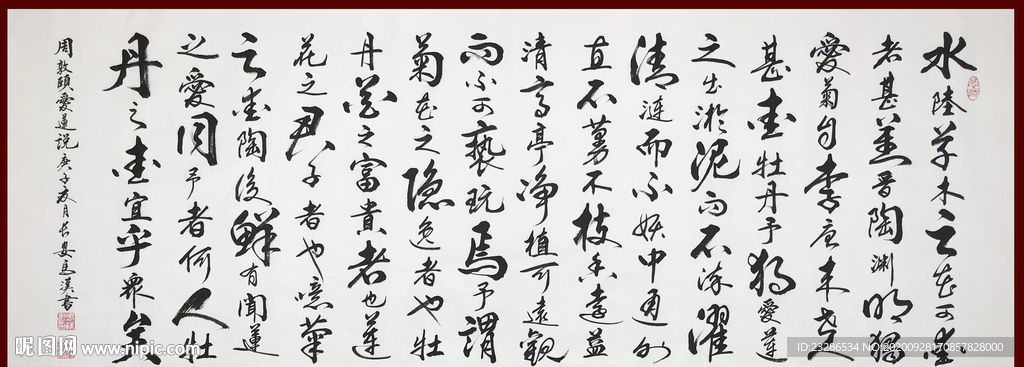 水陸草木之花可愛
者甚蕃晉陶淵明獨
愛菊自李唐来世人
甚愛牡丹予獨愛蓮
之出淤泥而不染濯
清漣而不妖中通外
直不蔓不枝香遠益
清亭亭淨植可遠觀
而不可褻玩焉予謂
菊花之隱逸者也牡
丹花之富貴者也蓮
花之君子者也噫菊
之愛陶後鮮有聞蓮
之愛同予者何人牡
丹之愛宜乎眾矣
周敦頤愛蓮說庚子夏月長安漢書
昵图网 www.nipic.com
ID:23286534 NO:20200928170857828000